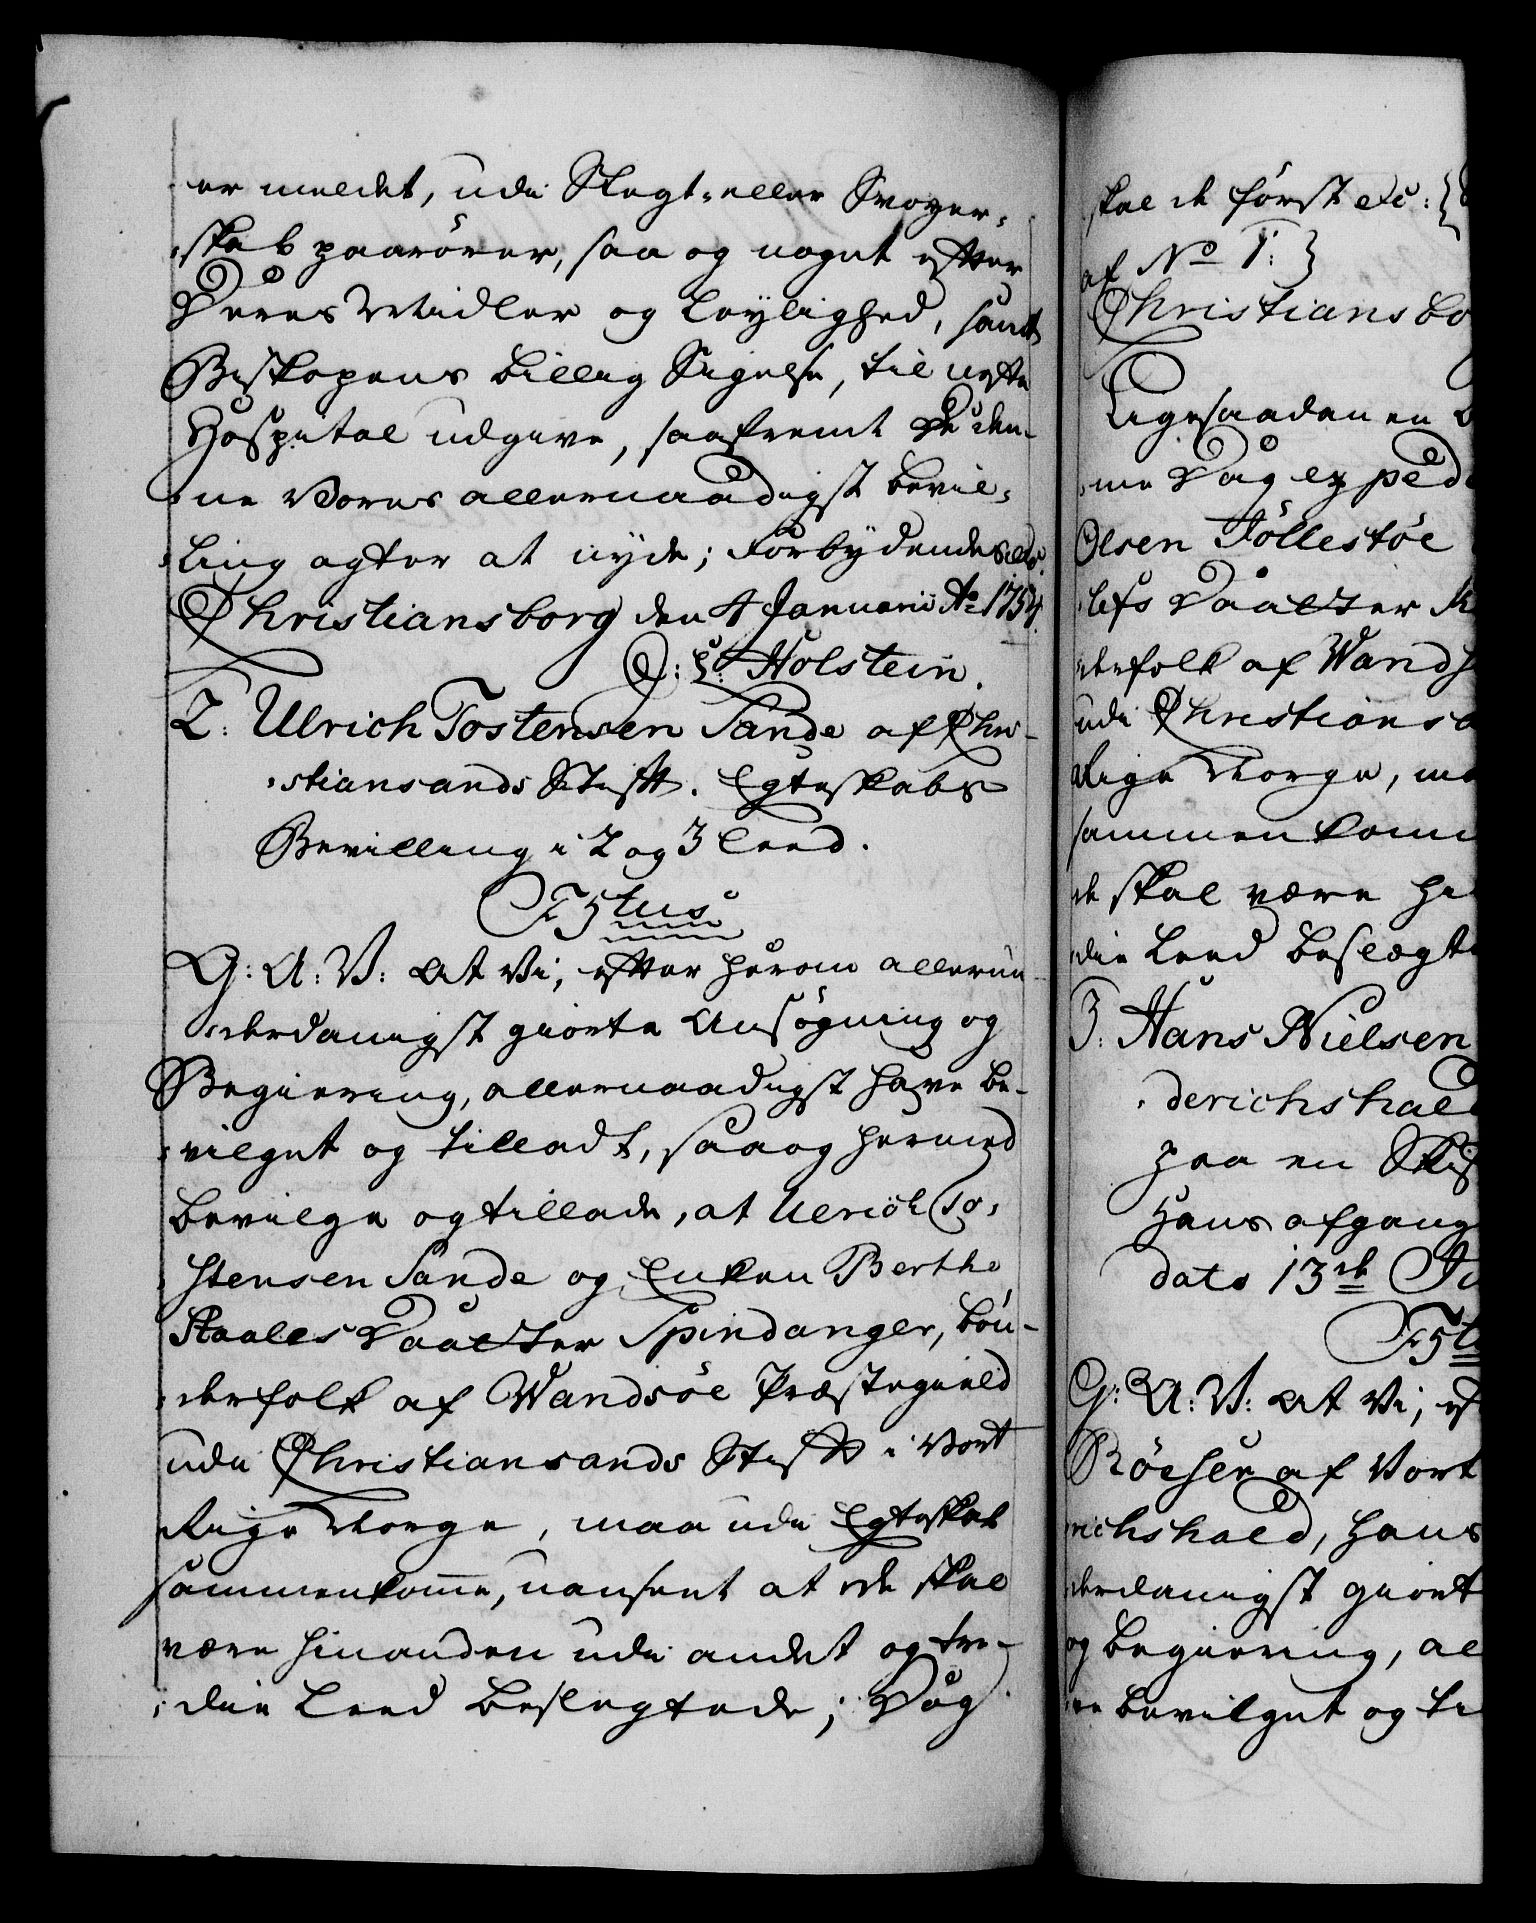 er meldet, udi Slegt- eller Svoger-
skab paarörer, saa og noget efter
Deres Midler og Leylighed, samt
Biskopens billig Sigelse, til neste
Hospital udgive, saafremt De den-
ne Vores allernaadigst bevil-
ling agter at nyde; Forbydendes alle
Christiansborg den 4 Januarii Ao 1754.
J: L: Holstein.
2: Ulrich Tostensen Sande af Chri-
stiansands Stift. Egteskabs
Bevilling i 2 og 3 Leed.
F5tus
G: A: V: At Vi, efter herom allerun-
derdanigst giorte Ansögning og
Begiering, allernaadigst have be-
vilget og tilladt, saa og hermed
bevilge og tillade, at Ulrich To-
stensen Sande og Enken Berthe
Staales Daatter Spindanger, bön-
derfolk af Wandsöe Præstegield
udi Christiansands Stift i Vort
Rige Norge, maa udi Egteskab
sammenkomme, uanseet at de skal
være hinanden udi andet og tre-
die Leed beslegtede; Dog
skal de först etc:
af No 1:
Christiansbo
Ligesaadan en b
me Dag exped
Olsen Töllestöe
lefs Daatter
derfolk af Wands
udi Christiansa
Rige Norge, ma
sammenkomm
de skal være hi
die Leed beslægte
3: Hans Nielsen
derichshald
paa en Skif
Hans afgang
dato 13de Ju
F5t
G: A: V: At Vi, ef
Röeser af Vort
richshald, Hans
derdanigst giort
og begiering, al
ve bevilget og ti